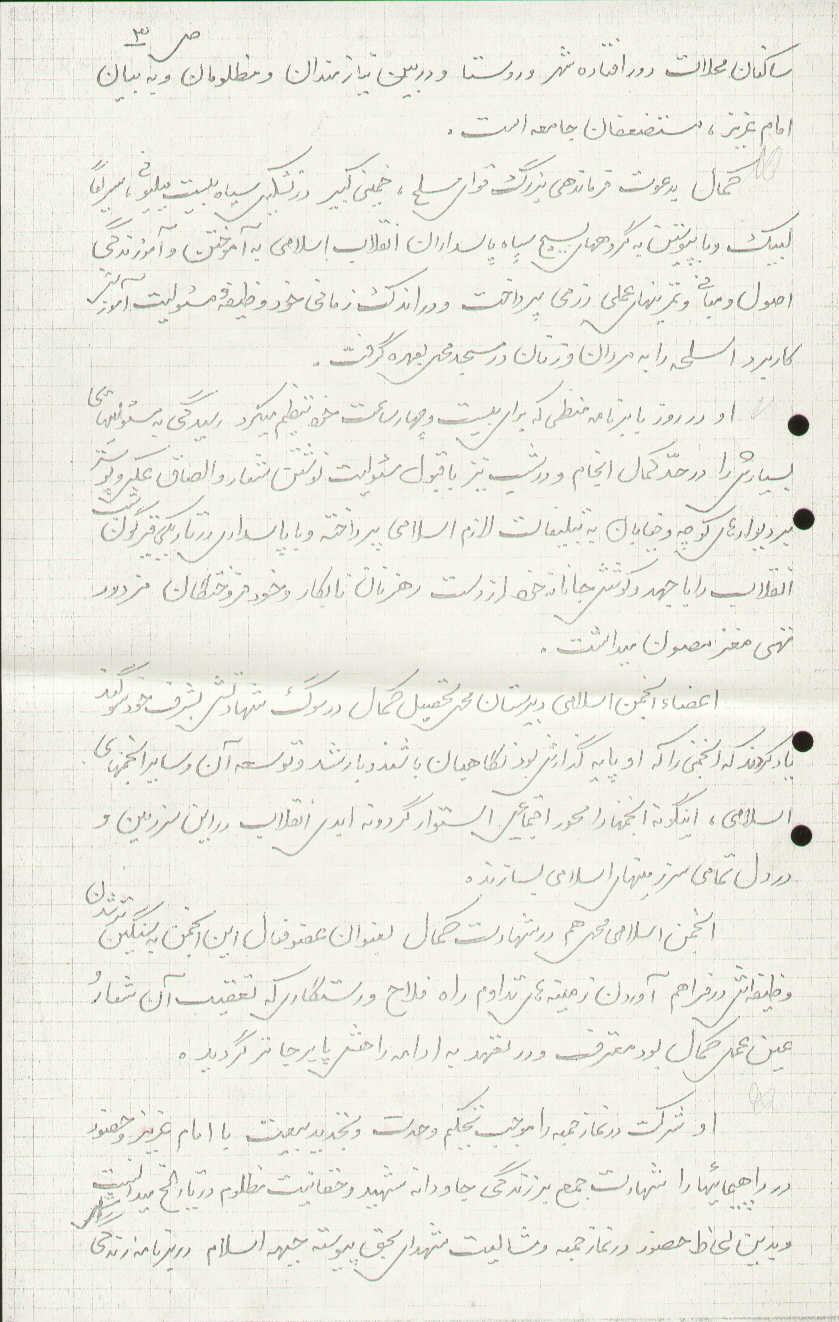 ص ۳
ساکنان محلات دور افتاده شهر و روستا و در بین نیازمندان و مظلومان و به بیان
امام عزیز، مستضعفان جامعه است.
کمال بدعوت فرماندهی بزرگ قوای مسلح، خمینی کبیر در تشکیل سپاه بیست میلیونی،
لبیک و با پیوستن به گروههای بسیج سپاه پاسداران انقلاب اسلامی به آموختن و آموزندگی
اصول و مبانی و تمرینهای عملی رزمی پرداخت و در اندک زمانی خود وظیفه و مسئولیت آموزش
کاربرد اسلحه را به مردان و زنان در مسجد محل بعهده گرفت.
او در روز با برنامه منظمی که برای بیست و چهار ساعت خود تنظیم میکرد رسیدگی به مسئولیتهای
بسیارش را در حدّ کمال انجام و در شب نیز با قبول مسئولیت نوشتن شعار و الصاق عکس و پوستر
بر دیوارهای کوچه و خیابان به تبلیغات لازم اسلامی پرداخته و با پاسداری در تاریکی قیرگون شب
انقلاب را با جهد و کوشش جانانه خود از دست رهزنان نابکار و خود فروختگان مزدور
تهی مغز مصون میداشت.
اعضاء انجمن اسلامی دبیرستان محل تحصیل کمال در سوگ شهادتش بشرف خود سوگند
یاد کردند که انجمنی را که او پایه گذارش بود نگاهبان باشند و با رشد و توسعه آن و سایر انجمنهای
اسلامی، اینگونه انجمنها را محور اجتماعی استوار گردونه ابدی انقلاب در این سرزمین و
در دل تمامی سرزمینهای اسلامی بسازند.
انجمن اسلامی محل هم در شهادت کمال بعنوان عضو فعال این انجمن به سنگین تر شدن
وظیفه اش در فراهم آوردن زمینه های تداوم راه فلاح و رستگاری که تعقیب آن شعارُ
عین عمل کمال بود معترف و در تعهد به ادامه راهش پا بر جا تر گردید.
او شرکت در نماز جمعه را موجب تحکیم وحدت و تجدید بیعت با امام عزیز و حضور
در راهپیمائیها را شهادت جمع بر زندگی جاودانه شهید و حقانیت مظلوم در تاریخ میدانست
و بدین لحاظ حضور در نماز جمعه و مشایعت شهدای بحق پیوسته جبهه اسلام در برنامه زندگی